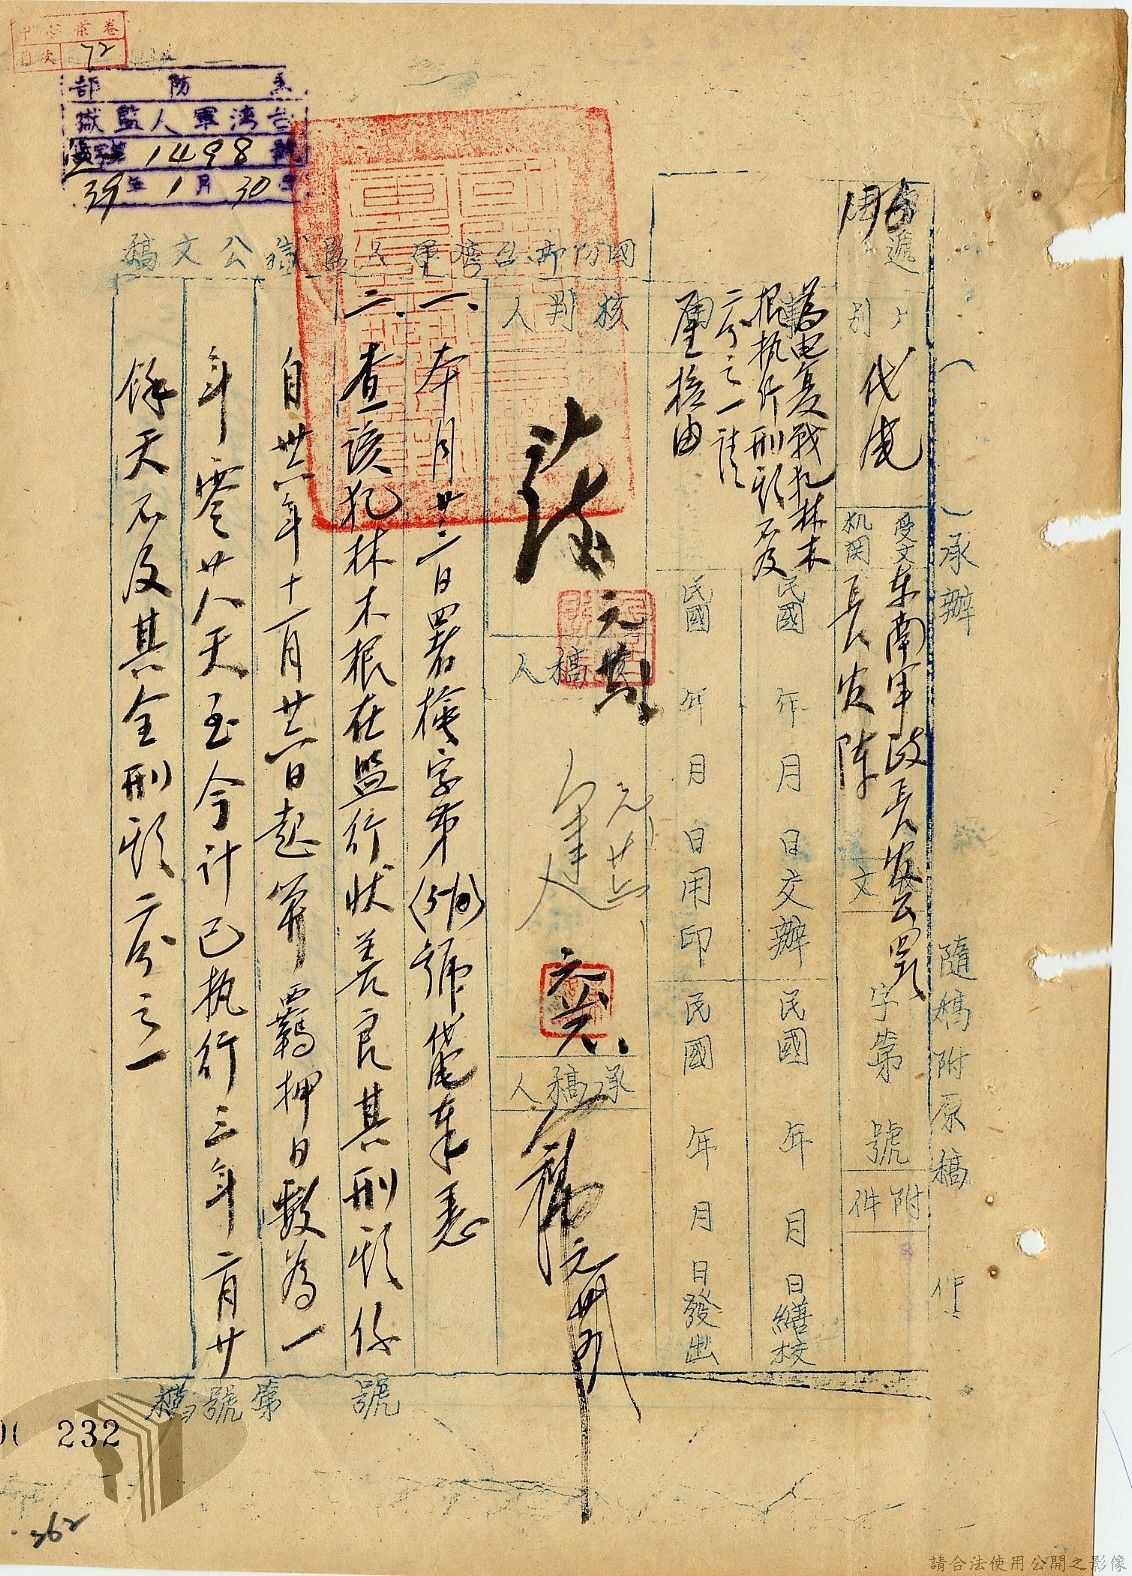 卷宗案
目次 72
國防部
台灣軍人監獄
1498號
39年1月30日
（ ）承辦 隨稿附原稿 件
國防部台灣軍人監獄公文稿
別
代電
受文機關
東南軍政長官公署
長官陳
文
字第 號
附件
為电复戰犯林木
根执行刑期不及
二分之一請
鑒核由
民國 年 月 日交辦
民國 年 月 日繕校
民國 年 月 日用印
民國 年 月 日發出
核判人
核稿人
承稿人
一、本月廿二日署檢字第(510)號代電奉悉
二、查該犯林木根在監行狀善良其刑期係
自卅六年十一月廿六日起算羈押日數為一
年零廿八天至今計已执行三年二月廿
餘天不及其全刑期二分之一
稿號第 號
232
262
請合法使用公開之影像